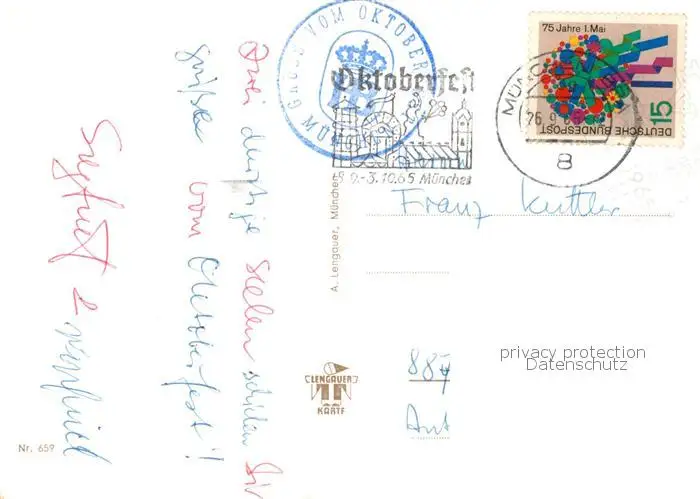 Drei durstige Seelen schicken Dir
Grüße vom Oktoberfest!
Siegfried & Winfried
GRUSS VOM OKTOBERF
MÜN
Oktoberfest
18. 9.-3.10.65 München
75 Jahre 1. Mai
15
DEUTSCHE BUNDESPOST
MÜNCH
26.9.65
8
Franz Kuttler
A. Lengauer, München
LENGAUER
KARTE
Nr. 659
privacy protection
Datenschutz